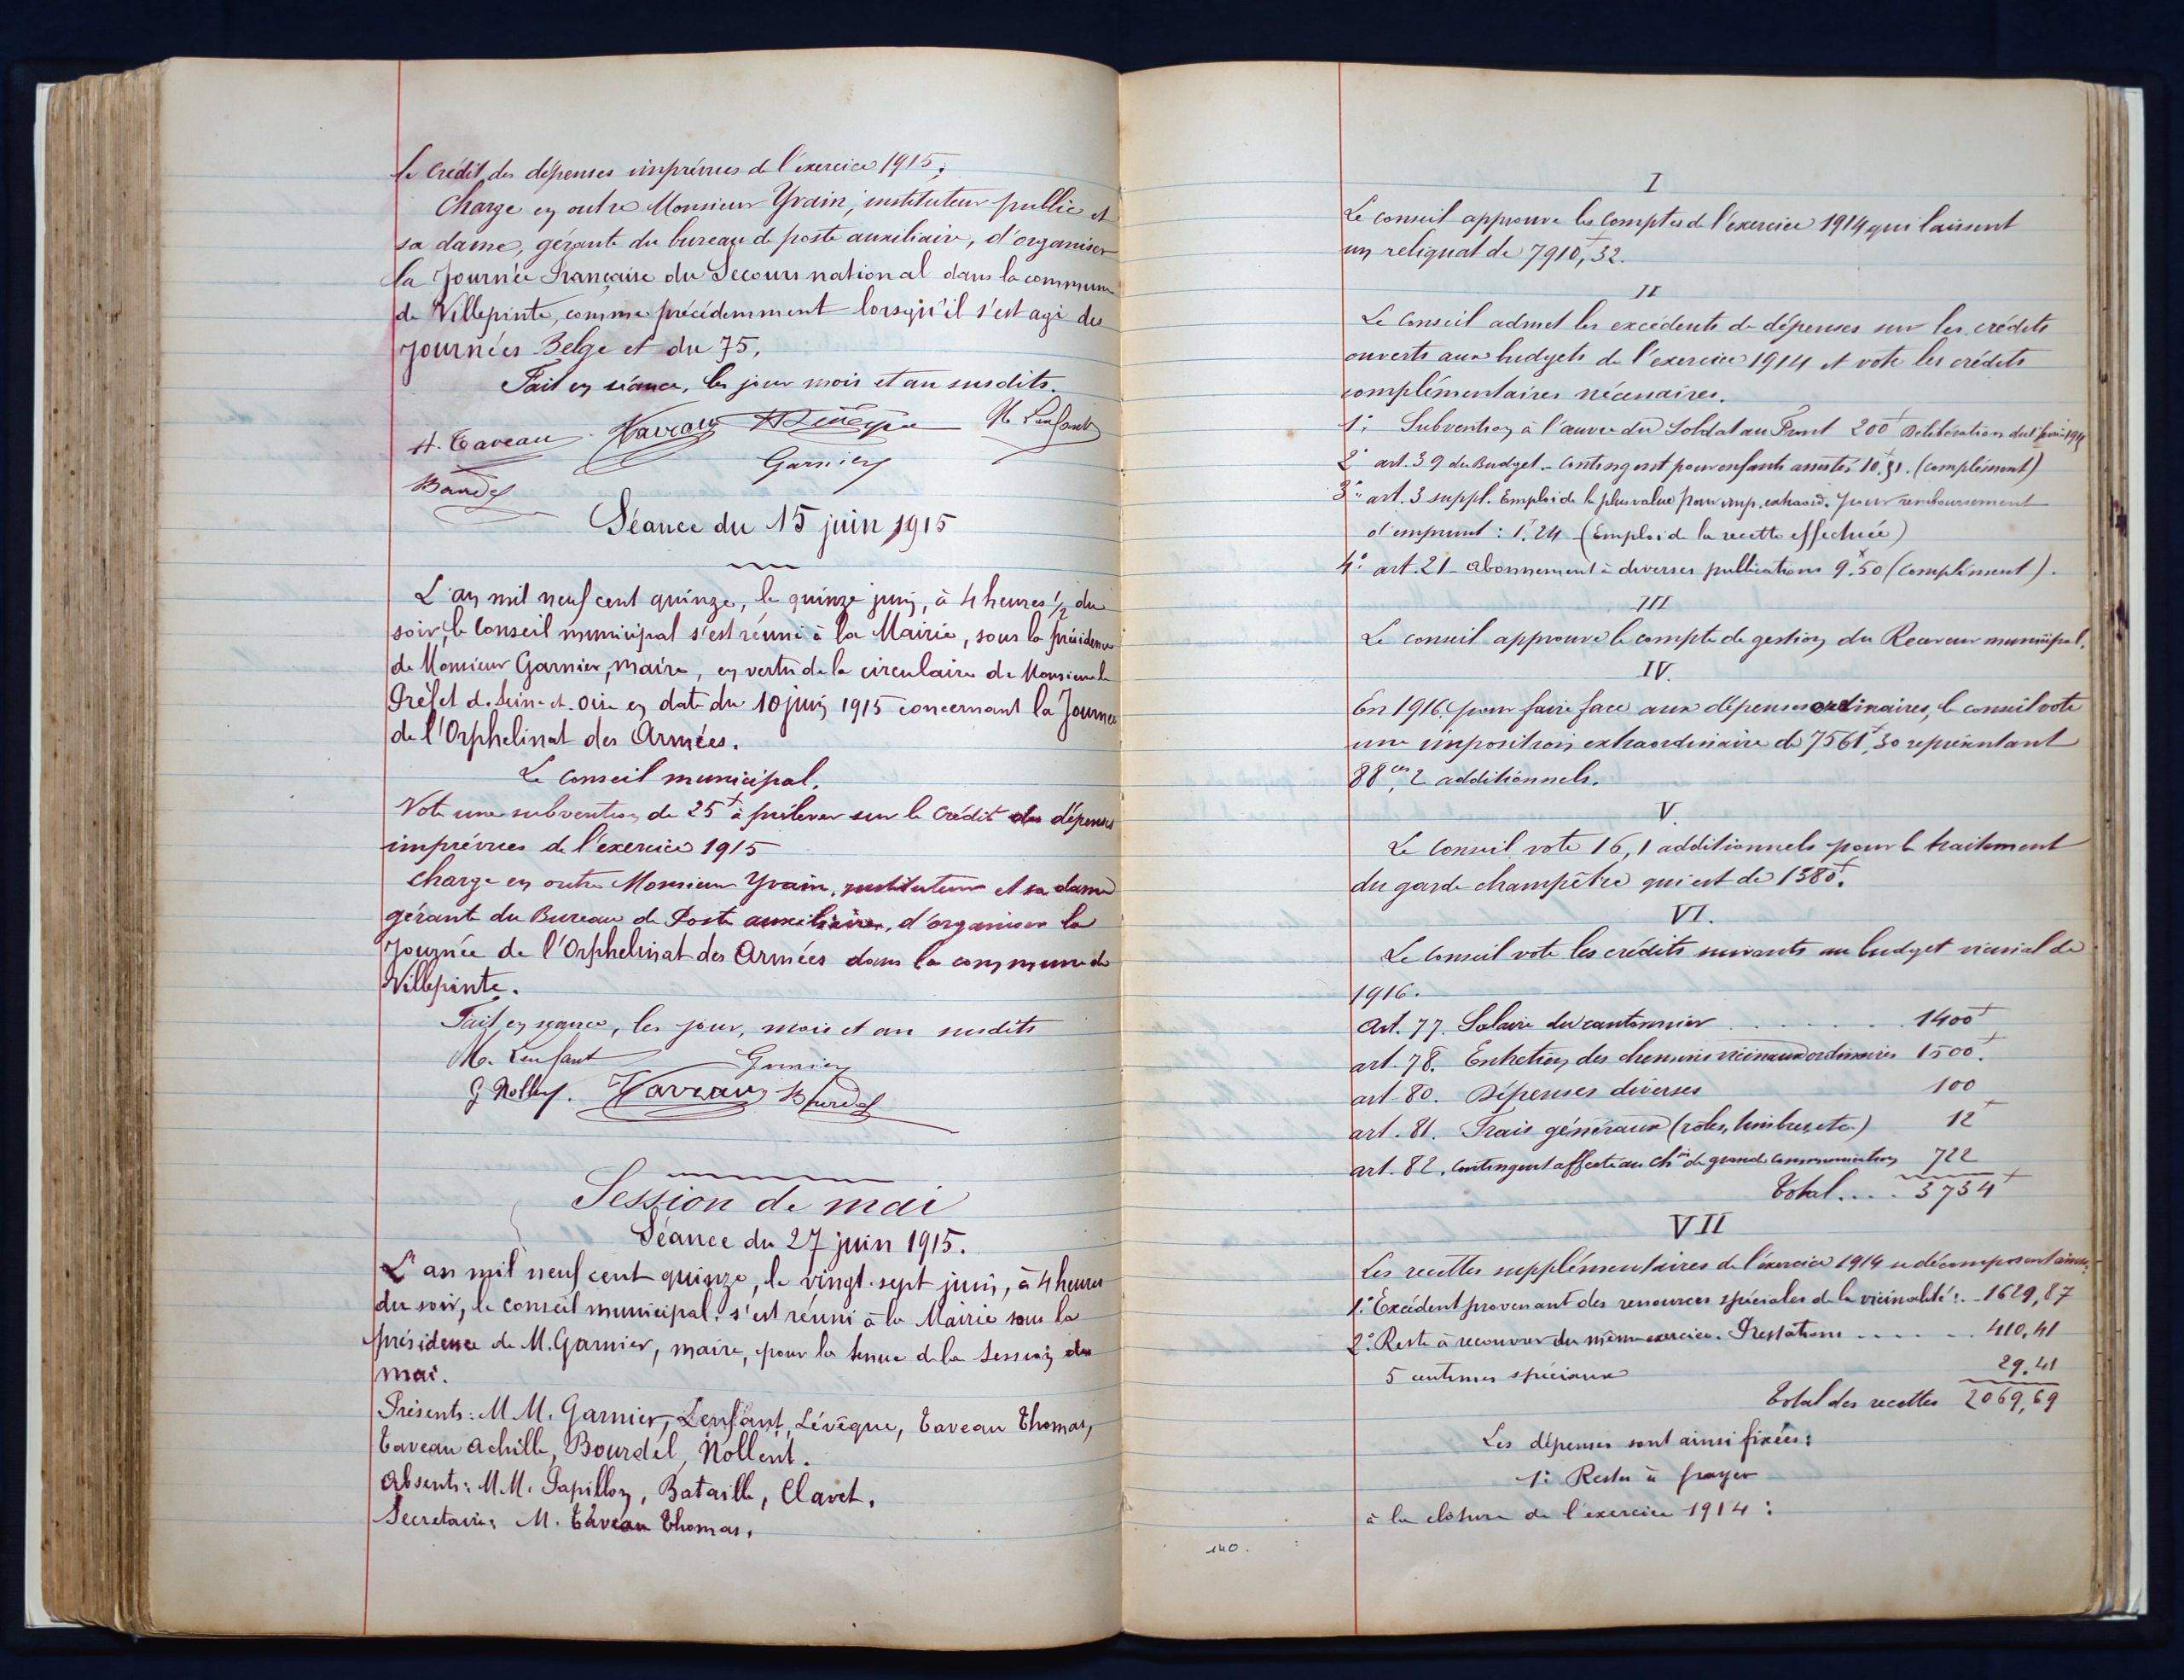 le Crédit des dépenses imprévues de l'exercice 1915;
Charge en outre Monsieur Yvain, instituteur public et
sa dame, gérante du bureau de poste auxiliaire, d'organiser
la Journée Française du Secours national dans la commune
de Villepinte, comme précédemment lorsqu'il s'est agi des
Journées Belge et du 75.
Fait en séance, les jour mois et an susdits.
A. Taveau Taveau Lévêque M. Lenfant
Garnier
Bourdel
Séance du 15 juin 1915
L'an mil neuf cent quinze, le quinze juin, à 4 heures 1/2 du
soir, le Conseil municipal s'est réuni à la Mairie, sous la présidence
de Monsieur Garnier, maire, en vertu de la circulaire de Monsieur le
Préfet de Seine-et-Oise en date du 10 juin 1915 concernant la Journée
de l'Orphelinat des Armées.
Le Conseil municipal,
Vote une subvention de 25f à prélever sur le Crédit des dépenses
imprévues de l'exercice 1915
Charge en outre Monsieur Yvain, instituteur et sa dame
gérante du Bureau de Poste auxiliaire, d'organiser la
Journée de l'Orphelinat des Armées dans la commune de
Villepinte.
Fait en séance, les jour, mois et an susdits
M. Lenfant Garnier
G Nollent. Taveau Bourdel
Session de mai
Séance du 27 juin 1915.
L'an mil neuf cent quinze, le vingt-sept juin, à 4 heures
du soir, le conseil municipal s'est réuni à la Mairie sous la
présidence de M. Garnier, maire, pour la tenue de la session de
mai.
Présents: MM. Garnier, Lenfant, Lévêque, Taveau Thomas,
Taveau Achille, Bourdel, Nollent.
Absents: MM. Papillon, Bataille, Clavet.
Secrétaire, M. Taveau Thomas.
I
Le conseil approuve les Comptes de l'exercice 1914 qui laissent
un reliquat de 7910f,32.
II
Le Conseil admet les excédents de dépenses sur les crédits
ouverts aux budgets de l'exercice 1914 et vote les crédits
complémentaires nécessaires.
1º Subvention à l'œuvre du Soldat au Front 200f Délibération du
2º art. 39 du Budget - Contingent pour enfants assistés 10f.51. (complément)
3º art. 3 suppl. Emploi de la plus value pour imp. extraord. pour remboursement
d'emprunt: 1f.24 (Emploi de la recette effectuée)
4º art. 21 - Abonnement à diverses publications 9f.50 (Complément).
III
Le conseil approuve le compte de gestion du Receveur municipal.
IV.
En 1916, pour faire face aux dépenses ordinaires, le conseil vote
une imposition extraordinaire de 7561f,30 représentant
88ces,2 additionnels.
V.
Le Conseil vote 16,1 additionnels pour le traitement
du garde-champêtre qui est de 1380f.
VI.
Le Conseil vote les crédits suivants au budget vicinal de
1916.
Art. 77. Salaire du cantonnier . . . . . . . 1400f
art. 78. Entretien des chemins vicinaux ordinaires 1500f.
art. 80. Dépenses diverses 100
art. 81. Frais généraux (rôles, timbres, etc.) 12f
art. 82. Contingent affecté au chin de grande communication 722
Total . . . . 3734f
VII
Les recettes supplémentaires de l'exercice 1914 se décomposent ainsi:
1º Excédent provenant des ressources spéciales de la vicinalité: . . 1629,87
2º Reste à recouvrer du même exercice. Prestations . . . . . 410,41
5 centimes spéciaux 29.41
Total des recettes 2069,69
Les dépenses sont ainsi fixées:
1º Restes à payer
à la clôture de l'exercice 1914:
140.